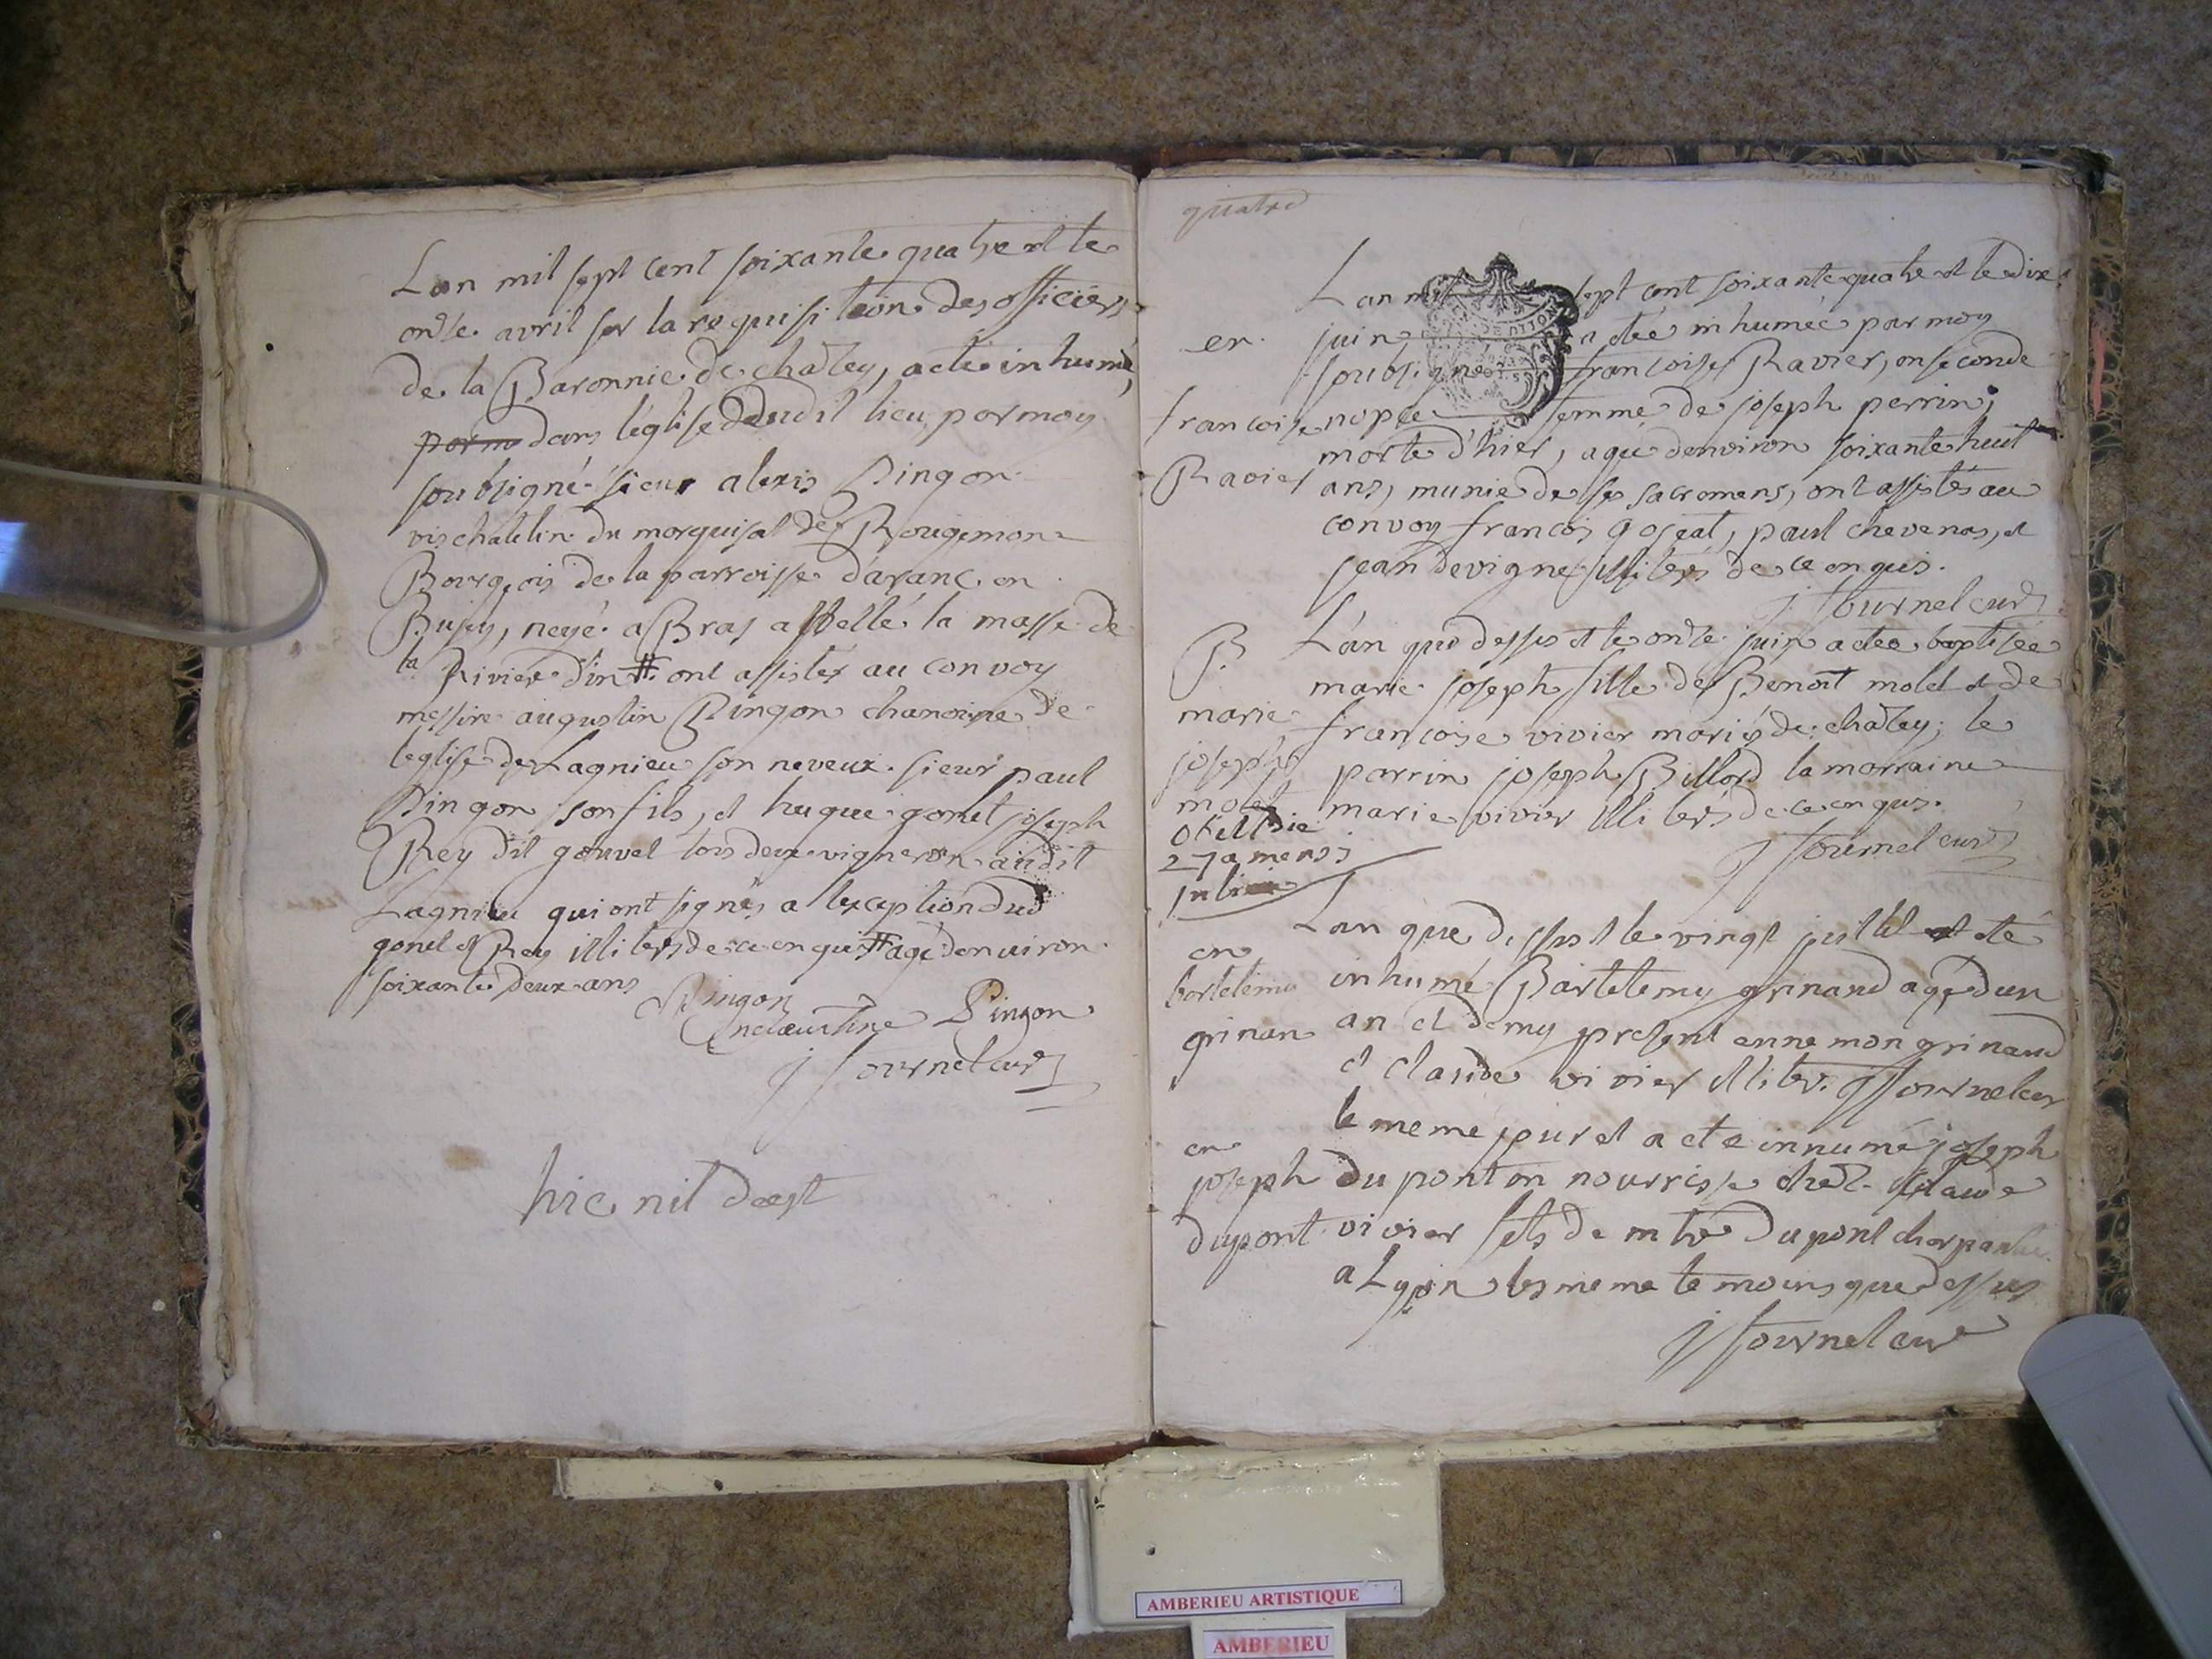 Lan mil sept cent soixante quatre et le
onze avril sur la requisition des officiers
de la Baronnie de chazey, a ete inhumé,
dans l'église dudit lieu par moy
soubsigné sieur alexis Pingon
vischatelin du marquisat de Rougemon
Bourgeois de la parroisse d'aranc en
Bugey, neyé a Bras appellé la masse de
la Riviere d'in # ont assistes au convoy
messire augustin Pingon chanoine de
leglise de Lagnieu son neveux. sieur paul
Pingon son fils, et hugue gonet joseph
Rey dit gouvel tos deux vigneron audit
Lagnieu qui ont signés a l'exception dud
gonet et Rey illiterés de ce enquis # agé denuiron
soixante deux ans
Pingon
Pingon
J Fournel curé
hic nil deest
quatre
Lan mil sept cent soixante quatre et le dix
en. juin a étée inhumée par moy
soubsigné francoise Ravier, en seconde
francoise nopce femme de joseph perrin,
morte d'hier, agée denviron soixante huit
Ravier ans, munie de ses sacremens, ont assistés au
convoy francois gojeat, paul chevenas, et
jean devigne illiterés de ce enquis.
J Fournel curé
B. L'an que dessus et le onze juin a étée baptisée
marie joseph fille de Benoit molet et de
marie francoise vivier mariés de chazey; le
joseph parrin joseph Billord la marraine
molet marie vivier illiterés de ce enquis.
obiit die
27a mensis
julii
J Fournel curé
Lan que dessus et le vingt juillet a eté
en
bartelemi inhumé Bartelemy grinand agé dun
grinan an et demy present ennemon grinand
et claude vivier illiter. J Fournel cur
le meme jour et a ete inhumé joseph
en
joseph dupont en nourrisse chez claude
dupont vivier fils de mtre Dupont charpantie
a Lyon les meme temoins que dessus
J Fournel curé
AMBERIEU ARTISTIQUE
AMBERIEU